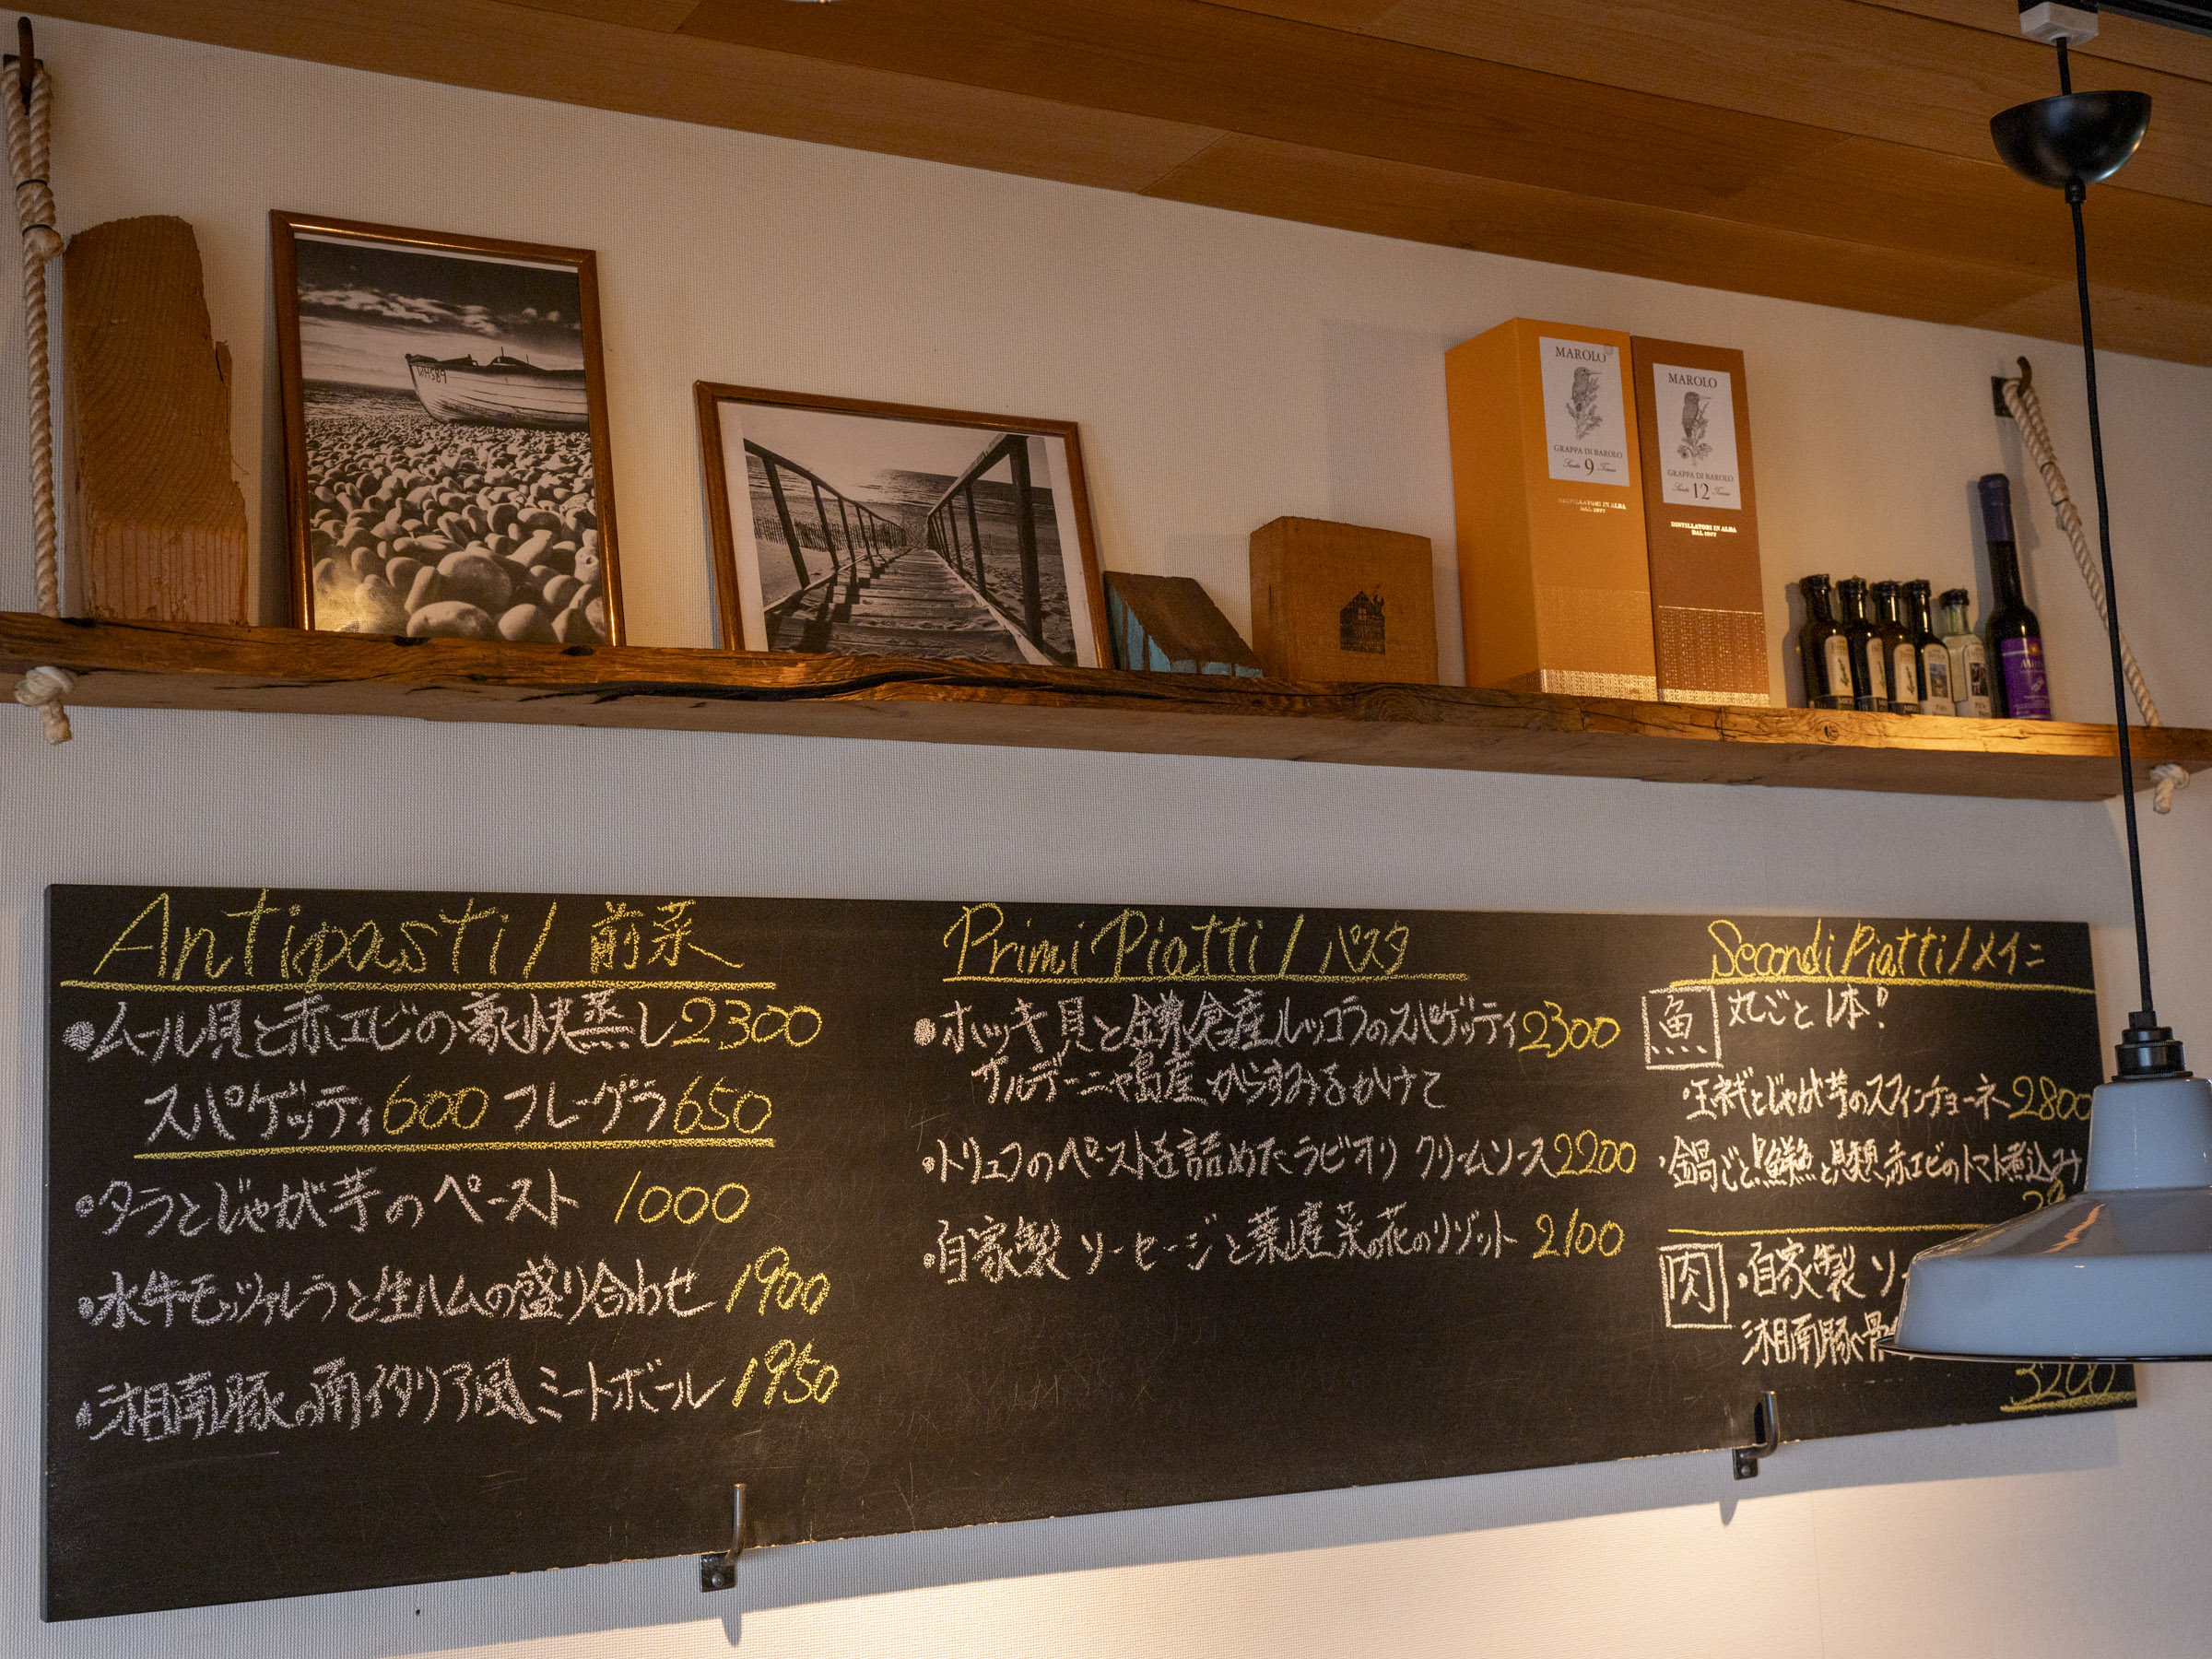 MAROLO
GRAPPA DI BAROLO
9
DISTILLATORI IN ALBA
DAL 1977
MAROLO
GRAPPA DI BAROLO
12
DISTILLATORI IN ALBA
DAL 1977
Antipasti / 前菜
●ムール貝と赤エビの豪快蒸し 2300
スパゲッティ 600 フレーグラ 650
・タラとじゃが芋のペースト 1000
・水牛モッツァレラと生ハムの盛り合わせ 1900
・湘南豚の南イタリア風ミートボール 1950
Primi Piatti / パスタ
●ホッキ貝と鎌倉産ルッコラのスパゲッティ 2300
サルデーニャ島産からすみをかけて
・トリュフのペーストを詰めたラビオリ クリームソース 2200
・自家製ソーセージと葉産菜の花のリゾット 2100
Secondi Piatti / メイン
魚 丸ごと1本!
とじゃが芋のスフィンチョーネ 2800
・鍋ごと!鮮魚と貝類、赤エビのトマト煮込み
肉 ・自家製ソ
湘南豚骨
3200